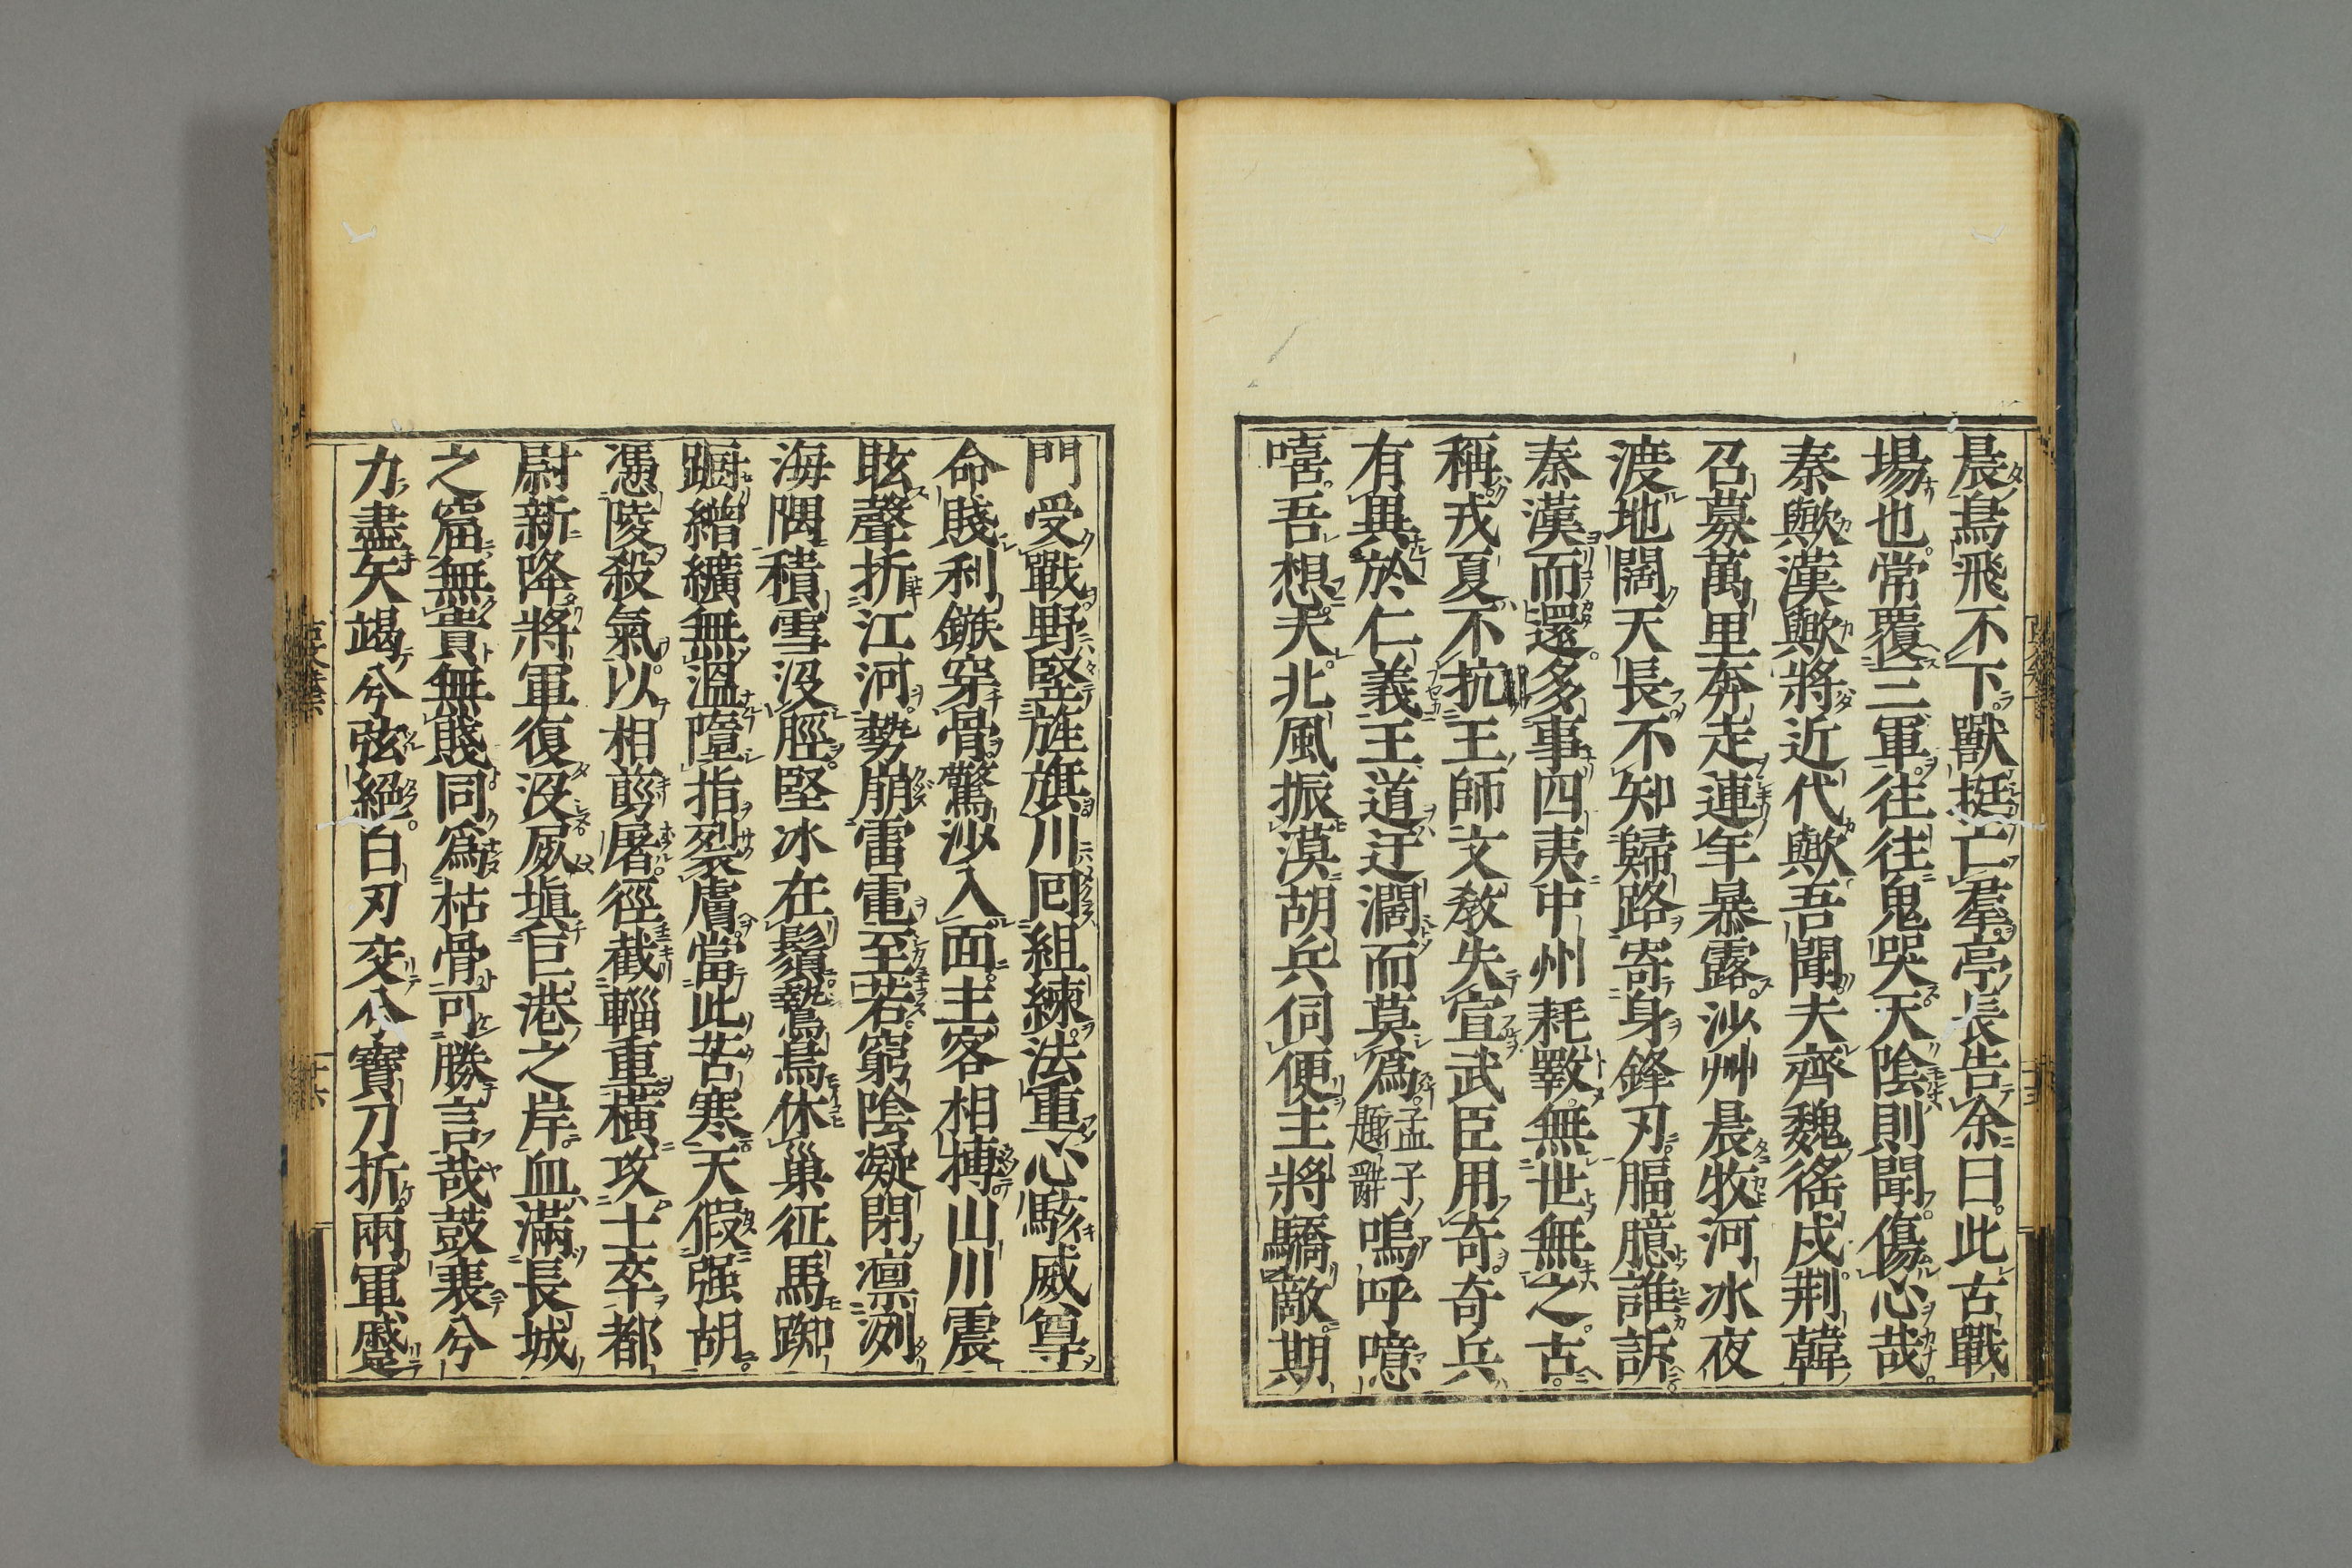 晨鳥飛不下獸挺亡羣亭長告余曰此古戰
場也常覆三軍往往鬼哭天陰則聞傷心哉
秦歟漢歟將近代歟吾聞夫齊魏徭戍荆韓
召募萬里奔走連年暴露沙艸晨牧河氷夜
渡地闊天長不知歸路寄身鋒刃腷臆誰訴
秦漢而還多事四夷中州耗斁無世無之古
稱戎夏不抗王師文敎失宣武臣用奇奇兵
有異於仁義王道迂濶而莫爲孟子題辭嗚呼噫
嘻吾想夫北風振漠胡兵伺便主將驕敵期
門受戰野竪旌旗川囘組練法重心駭威尊
命賤利鏃穿骨驚沙入面主客相搏山川震
眩聲折江河勢崩雷電至若窮陰凝閉凛洌
海隅積雪沒脛堅氷在鬚鷙鳥休巢征馬踟
蹰繒纊無溫墮指裂膚當此苦寒天假强胡
憑陵殺氣以相剪屠徑截輜重橫攻士卒都
尉新降將軍復沒屍塡巨港之岸血滿長城
之窟無貴無賤同爲枯骨可勝言哉鼓衰兮
力盡矢竭兮弦絕白刃交兮寶刀折兩軍蹙